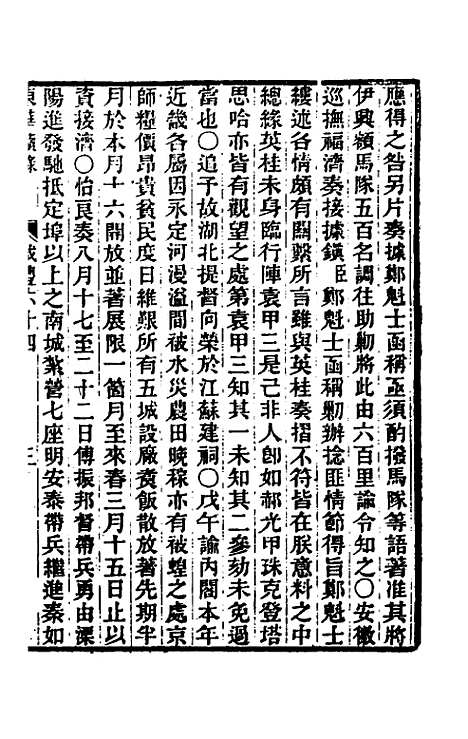 應得之咎另片奏據鄭魁士函稱亟須酌撥馬隊等語著准其將
伊興額馬隊五百名調往助勦將此由六百里諭令知之〇安徽
巡撫福濟奏接據鎮臣鄭魁士函稱勦辦捻匪情節得旨鄭魁士
縷述各情頗有關繫所言雖與英桂奏摺不符皆在朕意料之中
總緣英桂未身臨行陣袁甲三是己非人卽如郝光甲珠克登塔
思哈亦皆有觀望之處第袁甲三知其一未知其二參劾未免過
當也〇追予故湖北提督向榮於江蘇建祠〇戊午諭內閣本年
近畿各屬因永定河漫溢間被水災農田晚稼亦有被蝗之處京
師糧價昂貴貧民度日維艱所有五城設廠煑飯散放著先期半
月於本月十六開放並著展限一箇月至來春三月十五日止以
資接濟〇怡良奏八月十七至二十二日傅振邦督帶兵勇由溧
陽進發馳抵定埠以上之南城紮營七座明安泰帶兵繼進秦如
東華續錄 咸豐六十四 三